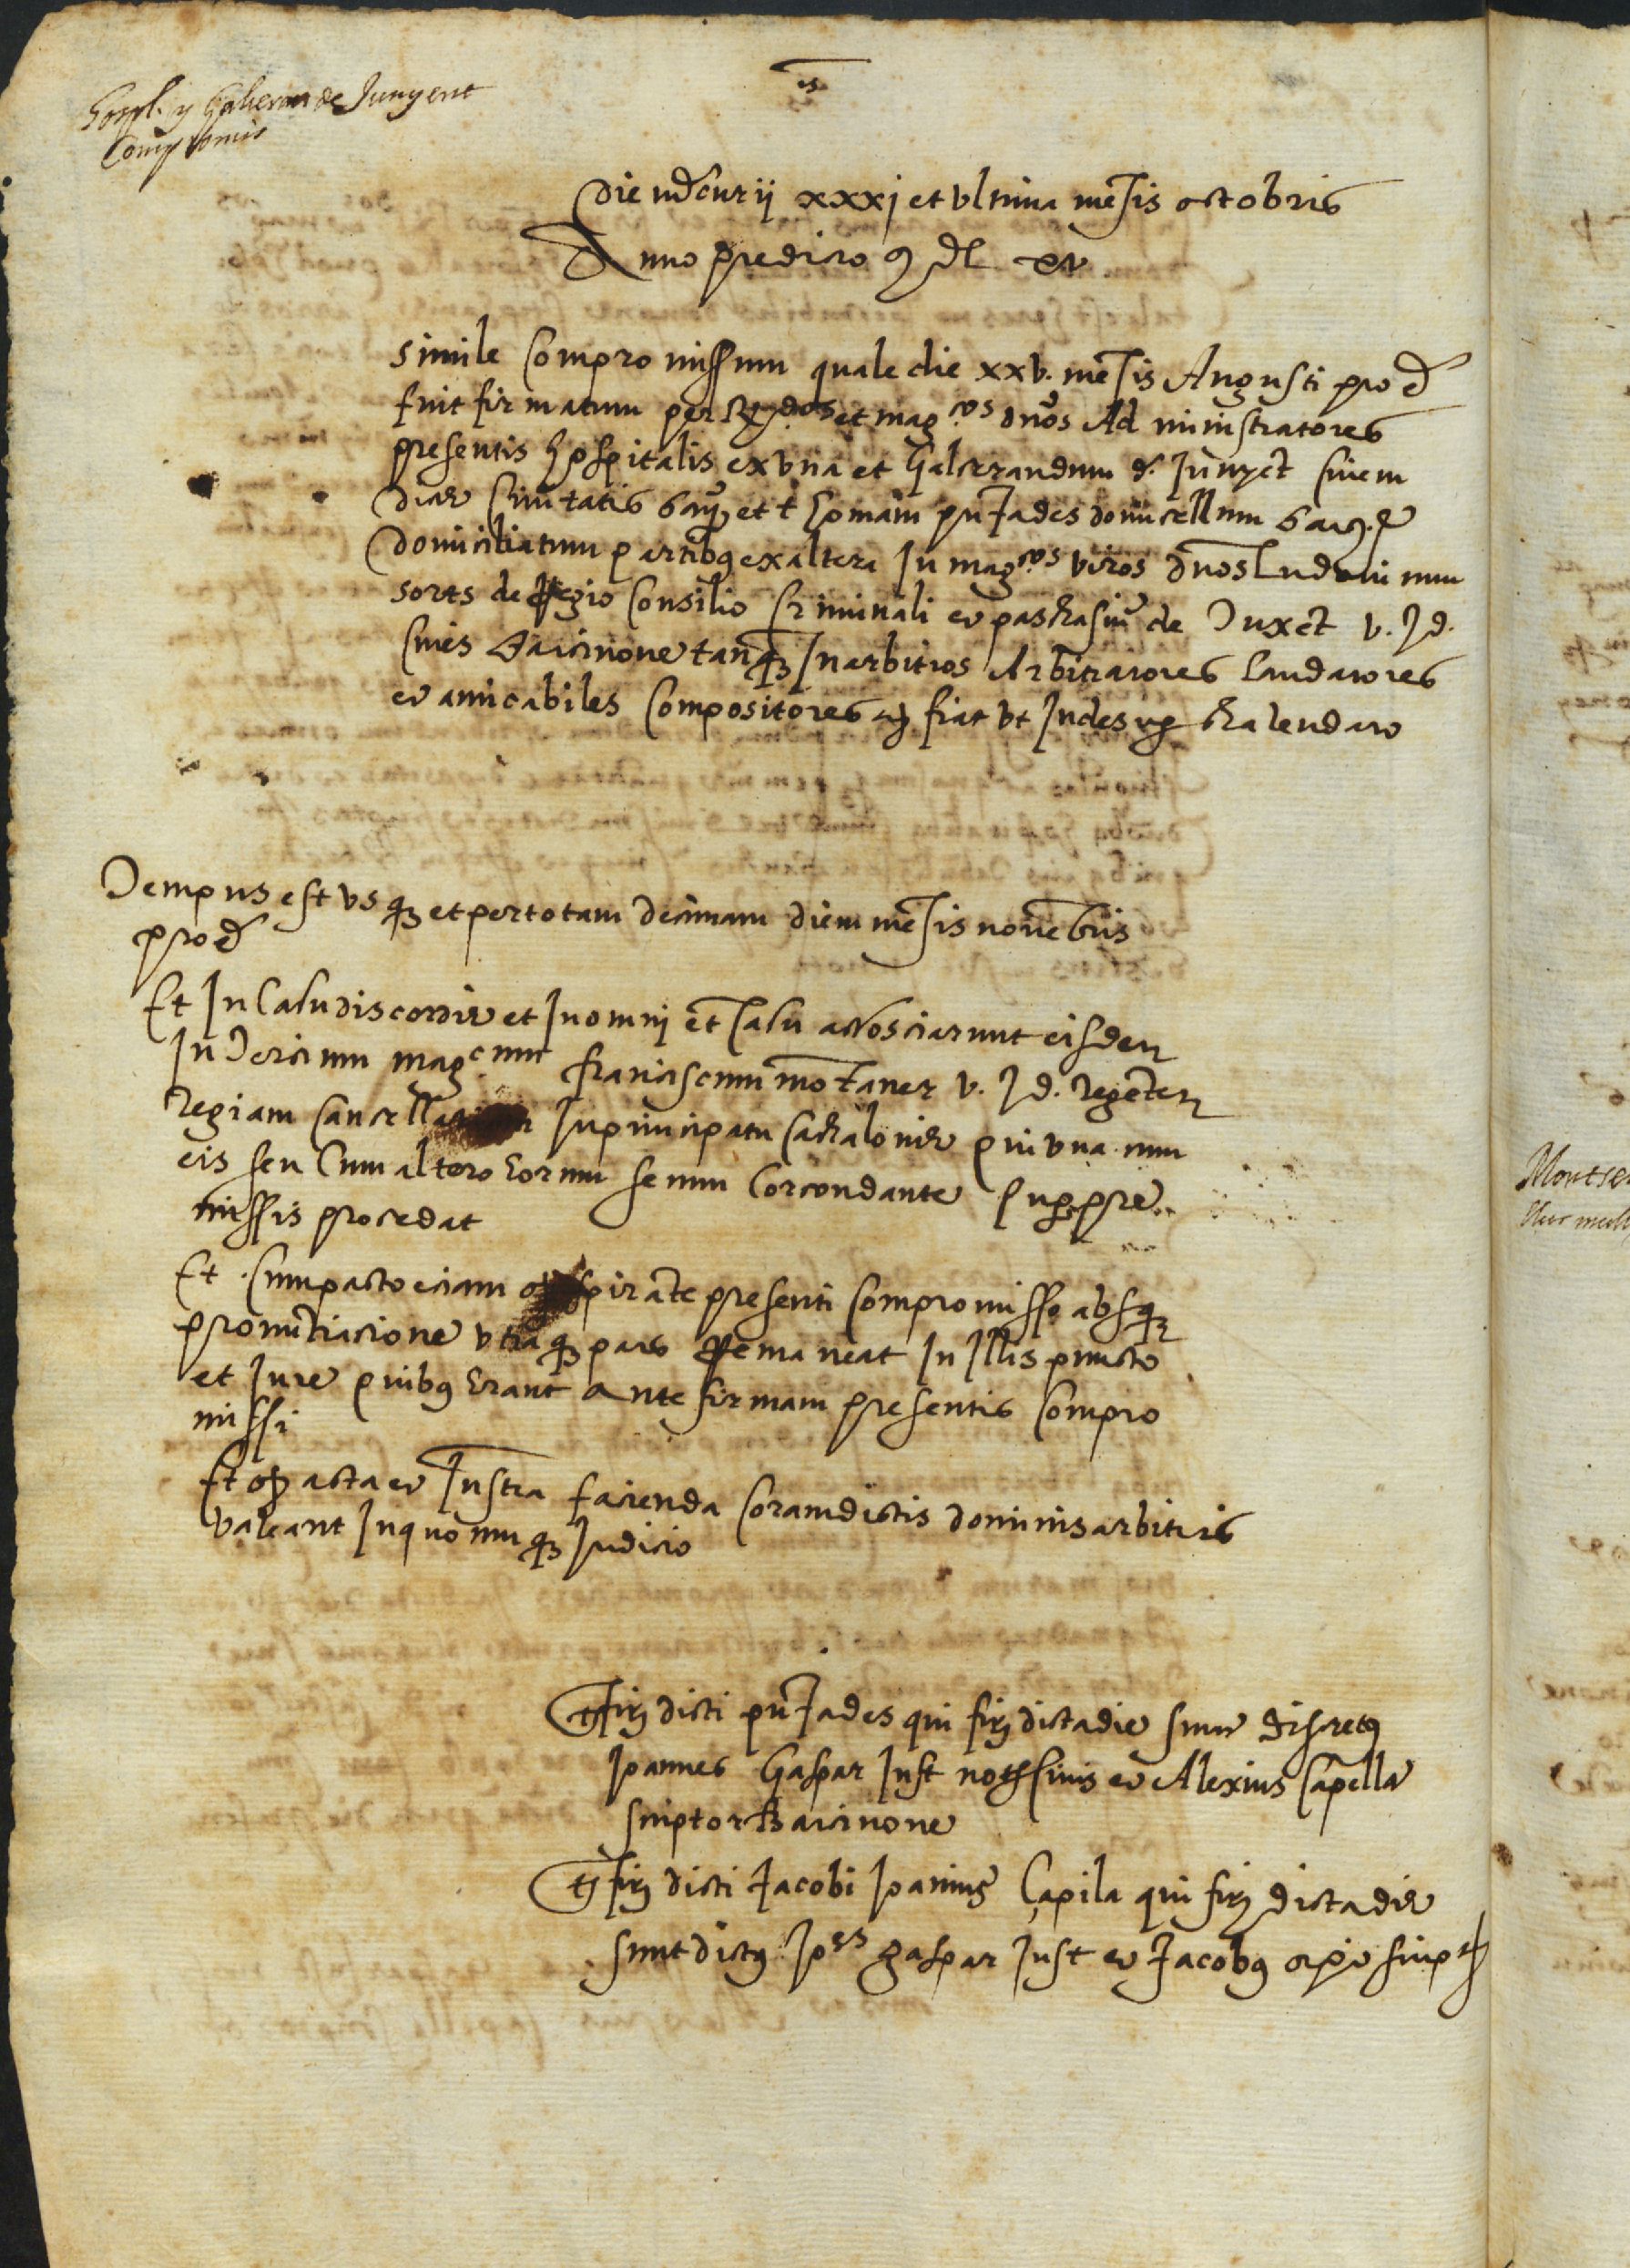 Hospl. y Galceran de Junyent
Compromis
Die mercurii xxxj et ultima mensis octobris
Anno predicto M DL xv
Simile Compromissum quale die xxv. mensis Augusti prod
fuit firmatum per Rdos et magcos dnos Administratores
presentis hospitalis ex una et Galcerandum d. Junyet civem
dicte Civitatis et t Thomam puJades domicellum
Domiciliatum partibus ex altera In magcos viros dnos Ludovicum
sorts de Regio Consilio Criminali et paschasium de Duxet v. J d.
Cives Barcinone tanq In arbitros Arbitratores Laudatores
et amicabiles Compositores fiat ut Indesup kalendato
Tempus est usq et per totam decimam diem mensis novebris
prod
Et In Casu discordie et In omni et Casu associarunt eisdem
In Tercium magcum franciscum motaner v. J d. regetem
Regiam Cancellariam In principatu Cathalonie qui una cum
eis seu Cum altero Eorum secum Concordante Super pre
missis procedat
Et Cum pacto eciam spirate presenti Compromisso absq
pronuntiacione utraq pars Remaneat In Illis puncto
et Jure quibus Erant Ante firmam presentis Compro
missi
Et q acta et Instra facienda Coram dictis dominis arbitris
valeant In quocumq Judicio
Ts firm dicti puJades qui firm dicta die sunt discretus
Joannes Gaspar Just not civis et Alexius Capella
scriptor Barcinone
Ts firm dicti Jacobi Joannis Çapila qui firm dicta die
sunt dictus Joes gaspar Just et Jacobus script
Montse